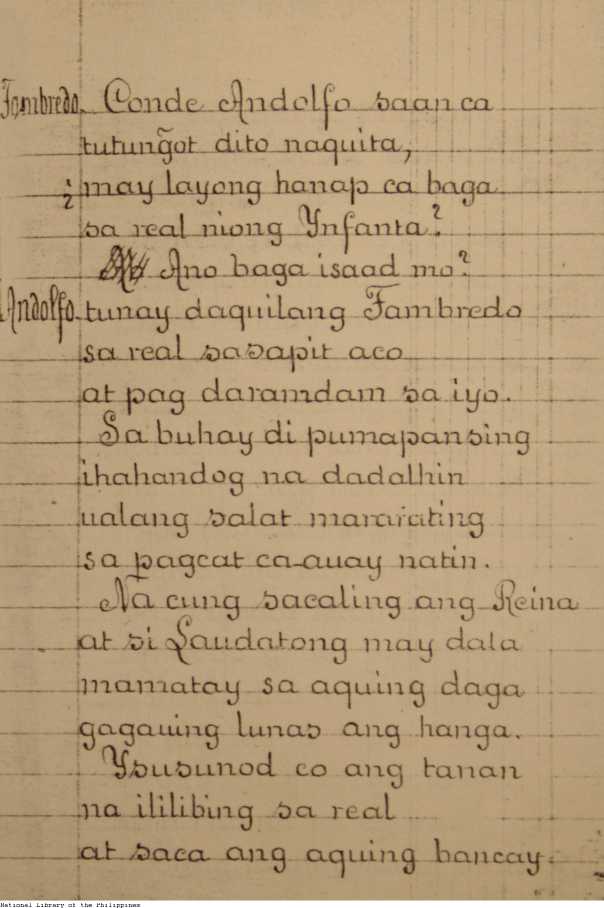 Fambredo. Conde Andolfo saan ca
tutung̃ot dito naquita,
½ may layong hanap ca baga
sa real niong Ynfanta?
Ano baga isaad mo?
Andolfo. tunay daquilang Fambredo
sa real sasapit aco
at pag daramdam sa iyo.
Sa buhay di pumapansing
ihahandog na dadalhin
ualang salat mararating
sa pagcat ca-auay natin.
Na cung sacaling ang Reina
at si Laudatong may dala
mamatay sa aquing daga
gagauing lunas ang hanga.
Ysusunod co ang tanan
na ililibing sa real
at saca ang aquing bancay.
National Library of the Philippines